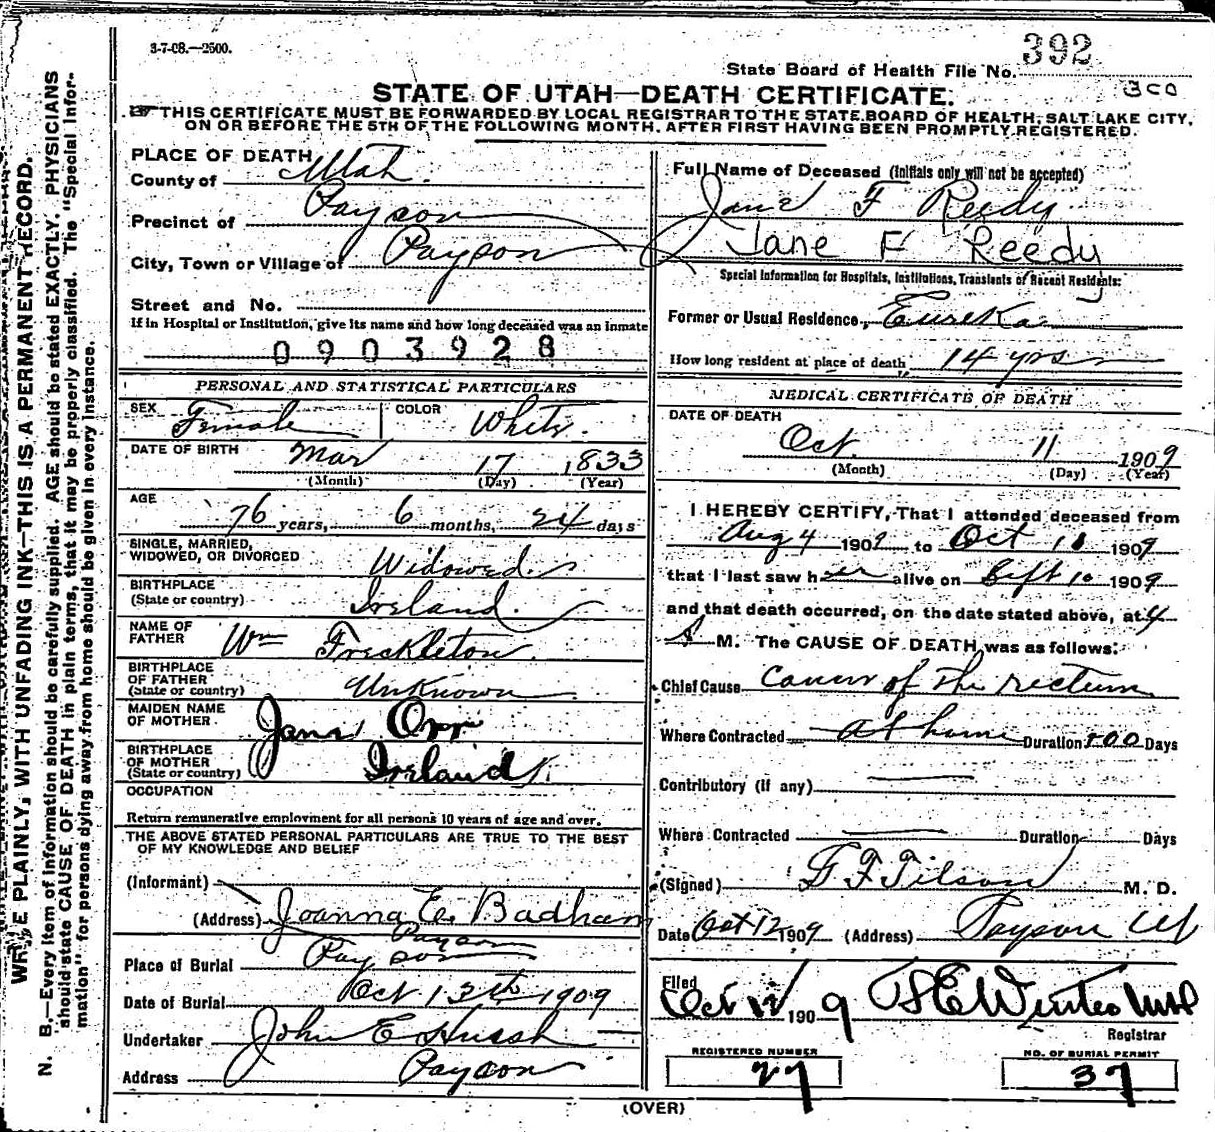 3-7-08.—2500.
State Board of Health File No. 392
3co
STATE OF UTAH—DEATH CERTIFICATE.
THIS CERTIFICATE MUST BE FORWARDED BY LOCAL REGISTRAR TO THE STATE BOARD OF HEALTH, SALT LAKE CITY,
ON OR BEFORE THE 5TH OF THE FOLLOWING MONTH, AFTER FIRST HAVING BEEN PROMPTLY REGISTERED.
WRITE PLAINLY, WITH UNFADING INK—THIS IS A PERMANENT RECORD.
N. B.—Every item of information should be carefully supplied. AGE should be stated EXACTLY. PHYSICIANS
should state CAUSE OF DEATH in plain terms, that it may be properly classified. The "Special Infor-
mation" for persons dying away from home should be given in every instance.
PLACE OF DEATH
County of Utah
Precinct of Payson
City, Town or Village of Payson
Street and No.
If in Hospital or Institution, give its name and how long deceased was an inmate
0903928
PERSONAL AND STATISTICAL PARTICULARS
SEX Female COLOR White
DATE OF BIRTH Mar 17 1833
(Month) (Day) (Year)
AGE
76 years, 6 months, 24 days
SINGLE, MARRIED,
WIDOWED, OR DIVORCED Widowed
BIRTHPLACE
(State or country) Ireland
NAME OF
FATHER Wm Freckleton
BIRTHPLACE
OF FATHER
(State or country) Unknown
MAIDEN NAME
OF MOTHER Jane Orr
BIRTHPLACE
OF MOTHER
(State or country) Ireland
OCCUPATION
Return remunerative employment for all persons 10 years of age and over.
THE ABOVE STATED PERSONAL PARTICULARS ARE TRUE TO THE BEST
OF MY KNOWLEDGE AND BELIEF
(Informant)
(Address) Joanna E. Badham
Payson
Place of Burial Payson
Date of Burial Oct 13th 1909
Undertaker John E Huish
Address Payson
Full Name of Deceased (Initials only will not be accepted)
Jane F Reedy
Jane F Reedy
Special Information for Hospitals, Institutions, Transients or Recent Residents:
Former or Usual Residence, Eureka
How long resident at place of death, 14 yrs
MEDICAL CERTIFICATE OF DEATH
DATE OF DEATH
Oct. 11 1909
(Month) (Day) (Year)
I HEREBY CERTIFY, That I attended deceased from
Aug 4 1909 to Oct 11 1909
that I last saw her alive on Sept 10 1909
and that death occurred, on the date stated above, at 4
M. The CAUSE OF DEATH was as follows:
Chief Cause Cancer of the rectum
Where Contracted at home Duration 500 Days
Contributory (if any)
Where Contracted Duration Days
(Signed) G F Tilson M. D.
Date Oct 12 1909 (Address) Payson Ut
Filed
Oct 12 1909 Winter MD
Registrar
REGISTERED NUMBER
27
NO. OF BURIAL PERMIT
37
(OVER)